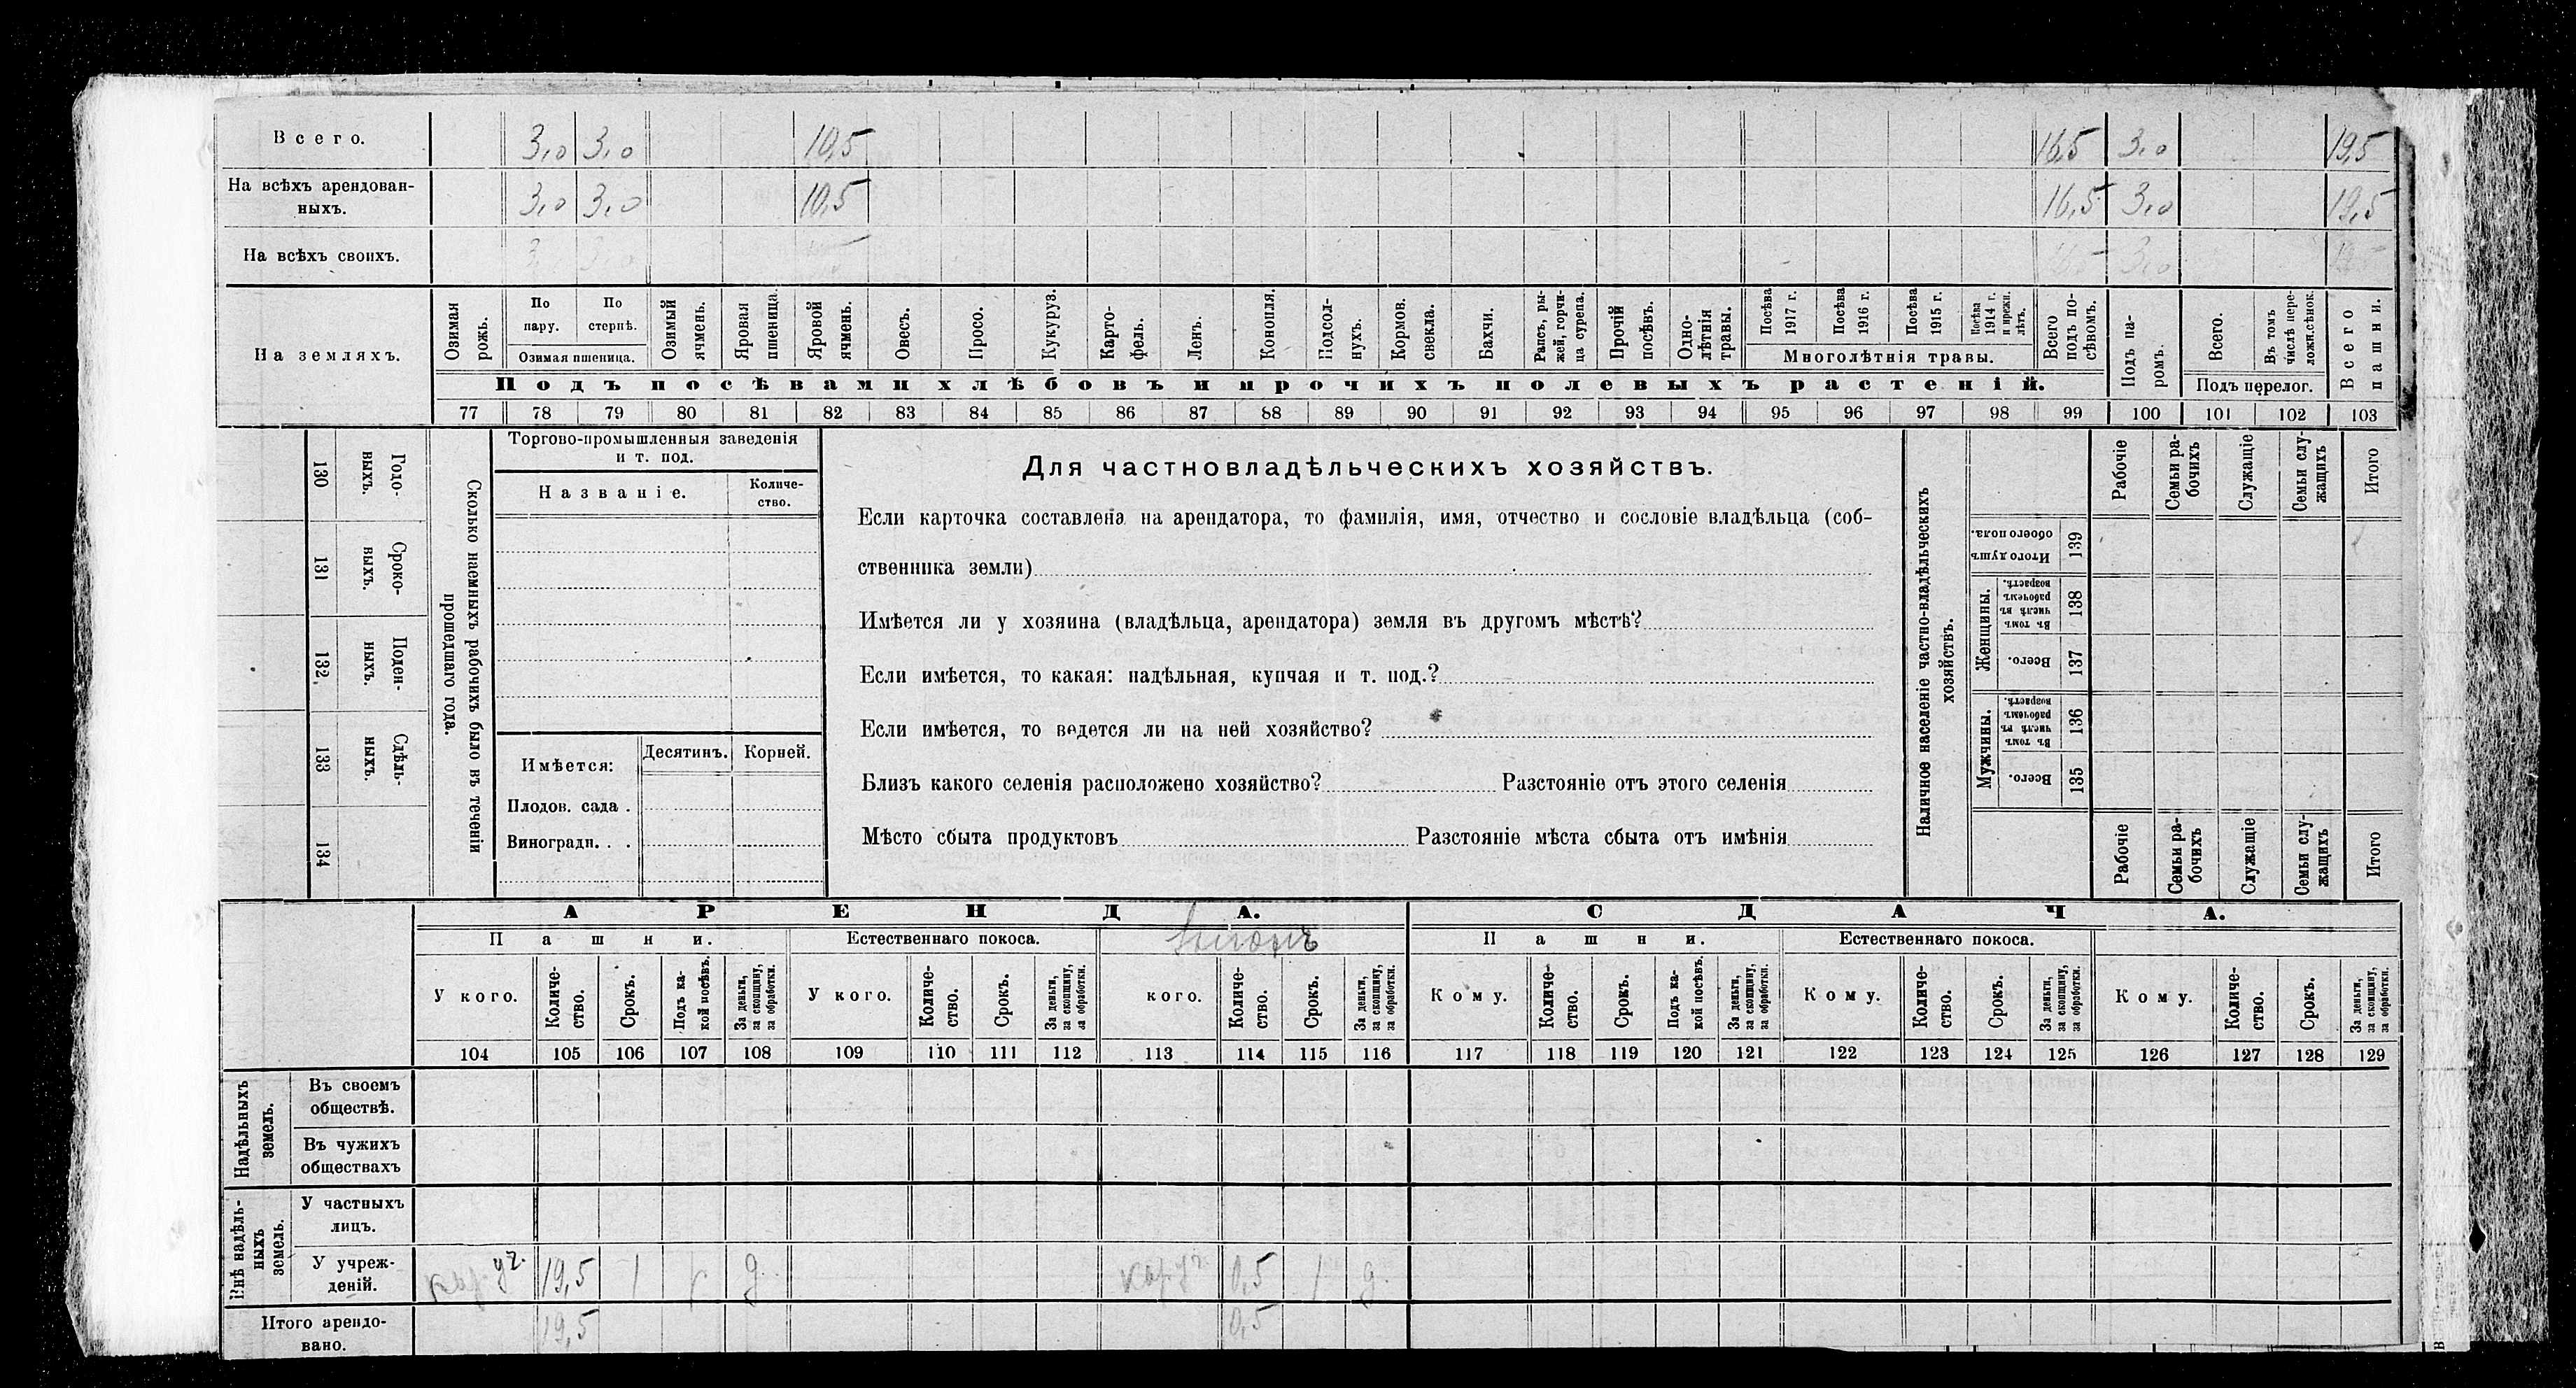 Всего. 3,0 3,0 10,5 16,5 3,0 19,5
На всѣхъ арендован-
ныхъ. 3,0 3,0 10,5 16,5 3,0 19,5
На всѣхъ своихъ. 3,0 3,0
На земляхъ.
Озимая рожь.
По пару.
По стернѣ.
Озимая пшеница.
Озимый ячмень.
Яровая пшеница.
Яровой ячмень.
Овесъ.
Просо.
Кукуруз.
Карто-
фель.
Ленъ.
Конопля.
Подсол-
нухъ.
Кормов.
свекла.
Бахчи.
Рапсъ, ры-
жей, горчи-
ца сурепа.
Прочій
посѣвъ.
Одно-
лѣтнія
травы.
Посѣва
1917 г.
Посѣва
1916 г.
Посѣва
1915 г.
Посѣва
1914 г.
и прежн.
лѣтъ.
Многолѣтнія травы.
Всего
подъ по-
сѣвомъ.
Подъ па-
ромъ.
Всего.
Въ томъ
числѣ пере-
ложн.сѣнок.
Подъ перелог.
Всего
пашни.
Подъ посѣвами хлѣбовъ и прочихъ полевыхъ растеній.
77 78 79 80 81 82 83 84 85 86 87 88 89 90 91 92 93 94 95 96 97 98 99 100 101 102 103
130 Годо-
выхъ.
131 Сроко-
выхъ.
132 Поден-
ныхъ.
133 Сдѣль-
ныхъ.
134
Сколько наемныхъ рабочихъ было въ теченіи
прошедшаго года.
Торгово-промышленныя заведенія
и т. под.
Названіе.
Количе-
ство.
Имѣется:
Десятинъ.
Корней.
Плодов. сада .
Виноградн. . .
Для частновладѣльческихъ хозяйствъ.
Если карточка составлена на арендатора, то фамилія, имя, отчество и сословіе владѣльца (соб-
ственника земли)
Имѣется ли у хозяина (владѣльца, арендатора) земля въ другомъ мѣстѣ?
Если имѣется, то какая: надѣльная, купчая и т. под.?
Если имѣется, то ведется ли на ней хозяйство?
Близъ какого селенія расположено хозяйство? Разстояніе отъ этого селенія
Мѣсто сбыта продуктовъ Разстояніе мѣста сбыта отъ имѣнія
Наличное населеніе частно-владѣльческихъ
хозяйствъ.
Рабочіе
Семьи ра-
бочихъ
Служащіе
Семьи слу-
жащихъ
Итого
Итого душъ
обоего пола.
139
Женщины.
Въ томъ
числѣ въ
рабочемъ
возрастѣ.
138
Всего.
137
Мужчины.
Въ томъ
числѣ въ
рабочемъ
возрастѣ.
136
Всего.
135
Рабочіе
Семьи ра-
бочихъ
Служащіе
Семьи слу-
жащихъ
Итого
АРЕНДА.
СДАЧА.
Пашни.
Естественнаго покоса.
Пашни.
Естественнаго покоса.
У кого.
Количе-
ство.
Срокъ.
Подъ ка-
кой посѣвъ.
За деньги,
за скопщину,
за обработки.
У кого.
Количе-
ство.
Срокъ.
За деньги,
за скопщину,
за обработки.
кого.
Количе-
ство.
Срокъ.
За деньги,
за скопщину,
за обработки.
Кому.
Количе-
ство.
Срокъ.
Подъ ка-
кой посѣвъ.
За деньги,
за скопщину,
за обработки.
Кому.
Количе-
ство.
Срокъ.
За деньги,
за скопщину,
за обработки.
Кому.
Количе-
ство.
Срокъ.
За деньги,
за скопщину,
за обработки.
104 105 106 107 108 109 110 111 112 113 114 115 116 117 118 119 120 121 122 123 124 125 126 127 128 129
Надѣльныхъ
земель.
Въ своемъ
обществѣ.
Въ чужихъ
обществахъ
Внѣ надѣль-
ныхъ
земель.
У частныхъ
лицъ.
У учреж-
деній. 19,5 1 д. 0,5 1 д.
Итого арендо-
вано. 19,5 0,5